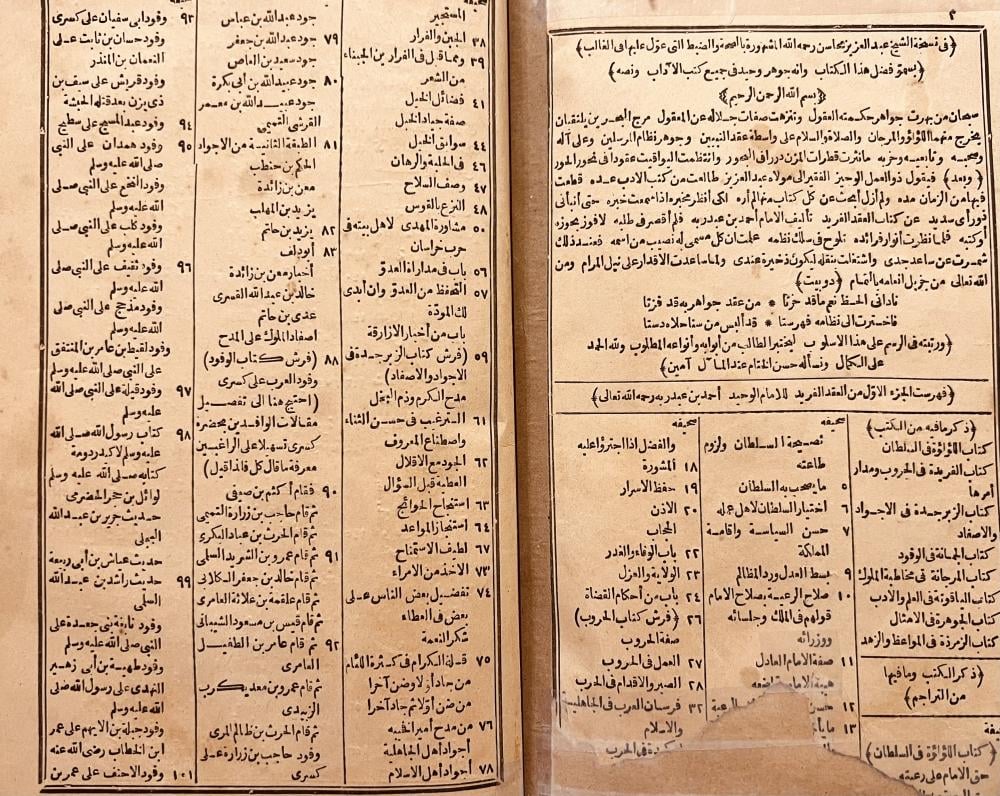 ٢
﴿في نسخة الشيخ عبد العزيز محاسن رحمه الله المشهورة بالصحة والضبط التي عول عليها في الغالب﴾
﴿يسمو فضل هذا الكتاب وانه جوهر وحيد في جميع كتب الآداب ونصه﴾
﴿بسم الله الرحمن الرحيم﴾
سبحان من بهرت جواهر حكمته العقول وتنزهت صفات جلاله عن المعقول مرج البحرين يلتقيان
يخرج منهما اللؤلؤ والمرجان والصلاة والسلام على واسطة عقد النبيين وجوهر نظام المرسلين وعلى آله
وصحبه وتابعيه وحزبه ما نثرت قطرات المزن دررا في البحور وانتظمت اليواقيت عقودا في نحور الحور
﴿وبعد﴾ فيقول ذو العمل الوجيز الفقير الى مولاه عبد العزيز طالعت من كتب الادب عده قطعت
فيها من الزمان مده ولم أزل أبحث عن كل كتاب منها لم أره لكي أنظر مخبره اذا سمعت خبره حتى أنبأني
ذو رأي سديد عن كتاب العقد الفريد تأليف الامام أحمد بن عبد ربه فلم أقصر في طلبه لافوز بحوزه
أو كتبه فلما نظرت أنوار فرائده تلوح في سلك نظمه علمت ان كل مسمى له نصيب من اسمه فعند ذلك
شمرت عن ساعد جدي واشتغلت بنقله ليكون ذخيرة عندي ولما ساعدت الاقدار على نيل المرام ومن
الله تعالى من جزيل انعامه بالتمام ﴿دوبيت﴾
ناداني الحظ نعم ما قد حزتا * من عقد جواهر به قد فزتا
فاخترت الى نظامه فهرستا * قد ألبس من سنا حلاه دستا
﴿ورتبته في الرسم على هذا الاسلوب ليختبر الطالب من أبوابه وأنواعه المطلوب ولله الحمد
على الكمال ونسأله حسن الختام عند المآل آمين﴾
﴿فهرست الجزء الاول من العقد الفريد للامام الوحيد أحمد بن عبد ربه رحمه الله تعالى﴾
﴿ذكر ما فيه من الكتب﴾
كتاب اللؤلؤة في السلطان
كتاب الفريدة في الحروب ومدار
أمرها
كتاب الزبرجدة في الاجواد
والاصفاد
كتاب الجمانة في الوفود
كتاب المرجانة في مخاطبة الملوك
كتاب الياقوتة في العلم والأدب
كتاب الجوهرة في الامثال
كتاب الزمردة في المواعظ والزهد
﴿ذكر الكتب وما فيها
من التراجم﴾
﴿كتاب اللؤلؤة في السلطان﴾
حق الامام على رعيته
صحيفه
نصيحة السلطان ولزوم
طاعته
٥ ما يصحب به السلطان
٦ اختيار السلطان لاهل عمله
٧ حسن السياسة واقامة
المملكة
٩ بسط العدل ورد المظالم
١٠ صلاح الرعية بصلاح الامام
قولهم في الملك وجلسائه
ووزرائه
١١ صفة الامام العادل
هيبة الامام
١٢ حسن
١٣
صحيفه
والفضل اذا اجترؤا عليه
١٨ المشورة
١٩ حفظ الاسرار
٢٠ الاذن
الحجاب
٢٢ باب الوفاء والغدر
٢٣ الولاية والعزل
٢٤ باب من أحكام القضاة
٢٦ ﴿فرش كتاب الحروب﴾
صفة الحروب
٢٧ العمل في الحروب
٢٨ الصبر والاقدام في الحرب
٣٢ فرسان العرب في الجاهلية
والاسلام
في الحرب
المستجير
٣٨ الجبن والفرار
٣٩ ومما قيل في الفرارين الجبناء
من الشعر
٤١ فضائل الخيل
صفة جياد الخيل
٤٤ سوابق الخيل
٤٦ في الحلبة والرهان
٤٧ وصف السلاح
٤٨ النزع بالقوس
٥٥ مشاورة المهدي لاهل بيته في
حرب خراسان
٥٦ باب في مداراة العدو
٥٧ التحفظ من العدو وان أبدى
لك المودة
باب من أخبار الازارقة
٥٩ (فرش كتاب الزبرجدة في
الاجواد والاصفاد)
مدح الكرم وذم البخل
٦١ الترغيب في حسن الثناء
واصطناع المعروف
٦٢ الجود مع الاقلال
العطية قبل السؤال
٦٣ استنجاح الحوائج
٦٤ استنجاز المواعد
٦٧ لطيف الاستمناح
٧٣ الاخذ من الامراء
٧٤ تفضيل بعض الناس على
بعض في العطاء
شكر النعمة
٧٥ قلة الكرام في كثرة اللئام
من جاد أولا وضن آخرا
من ضن أولا ثم جاد آخرا
٧٦ من مدح أميرا فخيبه
أجواد أهل الجاهلية
٧٨ أجواد أهل الاسلام
جود عبد الله بن عباس
٧٩ جود عبد الله بن جعفر
جود سعيد بن العاص
٨٠ جود عبيد الله بن أبي بكرة
جود عبيد الله بن معمر
القرشي التيمي
٨١ الطبقة الثانية من الاجواد
الحكم بن حنطب
معن بن زائدة
يزيد بن المهلب
٨٢ يزيد بن حاتم
٨٣ أبو دلف
أخبار معن بن زائدة
خالد بن عبد الله القسري
عدي بن حاتم
اصفاد الملوك على المدح
٨٨ (فرش كتاب الوفود)
وفود العرب على كسرى
(احتج هنا الى تفصيل
مقالات الوافدين بحضرة
كسرى تسهيلا على الراغبين
معرفة ما قال كل فاذا قيل)
٩٠ فقام أكثم بن صيفي
ثم قام حاجب بن زرارة التميمي
ثم قام الحرث بن عباد البكري
٩١ ثم قام عمرو بن الشريد السلمي
ثم قام خالد بن جعفر الكلابي
ثم قام علقمة بن علاثة العامري
ثم قام قيس بن مسعود الشيباني
٩٢ ثم قام عامر بن الطفيل
العامري
ثم قام عمرو بن معديكرب
الزبيدي
ثم قام الحرث بن ظالم المري
وفود حاجب بن زرارة على
كسرى
٩٣ وفود أبي سفيان على كسرى
وفود حسان بن ثابت على
النعمان بن المنذر
وفود قريش على سيف بن
ذي يزن بعد قتله الحبشة
٩٤ وفود عبد المسيح على سطيح
٩٥ وفود همدان على النبي
صلى الله عليه وسلم
وفود النخع على النبي صلى
الله عليه وسلم
وفود كلب على النبي صلى
الله عليه وسلم
٩٦ وفود ثقيف على النبي صلى
الله عليه وسلم
وفود مذحج على النبي صلى
الله عليه وسلم
وفود لقيط بن عامر بن المنتفق
على النبي صلى الله عليه وسلم
٩٧ وفود قيلة على النبي صلى الله
عليه وسلم
٩٨ كتاب رسول الله صلى الله
عليه وسلم لاكيدر دومة
كتابه صلى الله عليه وسلم
لوائل بن حجر الحضرمي
حديث جرير بن عبد الله
البجلي
حديث عباس بن أبي ربيعة
٩٩ حديث راشد بن عبد الله
السلمي
وفود نابغة بني جعدة على
النبي صلى الله عليه وسلم
وفود طهفة بن أبي زهير
النهدي على رسول الله صلى
الله عليه وسلم
وفود جبلة بن الايهم على عمر
ابن الخطاب رضي الله عنه
١٠١ وفود الاحنف على عمر بن